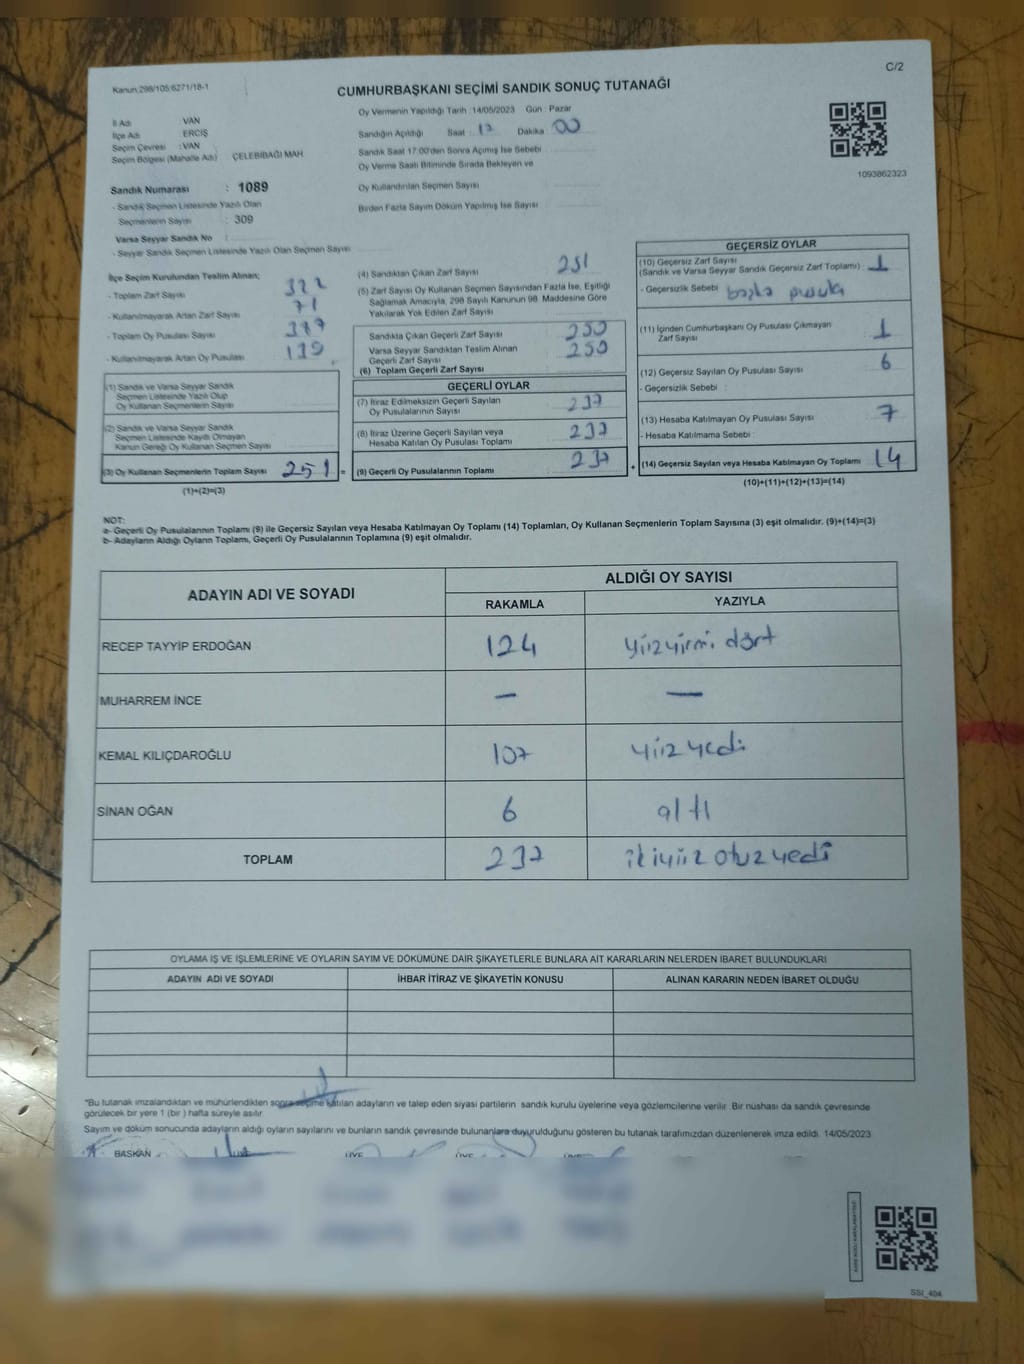 C/2
Kanun:298/105;6271/18-1
CUMHURBAŞKANI SEÇİMİ SANDIK SONUÇ TUTANAĞI
Oy Vermenin Yapıldığı Tarih : 14/05/2023 Gün : Pazar
İl Adı VAN
İlçe Adı ERCİŞ
Seçim Çevresi : VAN
Seçim Bölgesi (Mahalle Adı) ÇELEBİBAĞI MAH
Sandığın Açıldığı Saat : 17 Dakika : 00
Sandık Saat 17:00'den Sonra Açımış İse Sebebi
Oy Verme Saati Bitiminde Sırada Bekleyen ve
Oy Kullandırılan Seçmen Sayısı
Birden Fazla Sayım Döküm Yapılmış İse Sayısı
1093862323
Sandık Numarası : 1089
- Sandık Seçmen Listesinde Yazılı Olan
Seçmenlerin Sayısı : 309
Varsa Seyyar Sandık No
- Seyyar Sandık Seçmen Listesinde Yazılı Olan Seçmen Sayısı
İlçe Seçim Kurulundan Teslim Alınan;
- Toplam Zarf Sayısı 322
- Kullanılmayarak Artan Zarf Sayısı 71
- Toplam Oy Pusulası Sayısı
- Kullanılmayarak Artan Oy Pusulası
(1) Sandık ve Varsa Seyyar Sandık
Seçmen Listesinde Yazılı Olup
Oy Kullanan Seçmenlerin Sayısı
(2) Sandık ve Varsa Seyyar Sandık
Seçmen Listesinde Kayıtlı Olmayan
Kanun Gereği Oy Kullanan Seçmen Sayısı
(3) Oy Kullanan Seçmenlerin Toplam Sayısı 251 =
(1)+(2)=(3)
(4) Sandıktan Çıkan Zarf Sayısı 251
(5) Zarf Sayısı Oy Kullanan Seçmen Sayısından Fazla İse, Eşitliği
Sağlamak Amacıyla, 298 Sayılı Kanunun 98. Maddesine Göre
Yakılarak Yok Edilen Zarf Sayısı
Sandıkta Çıkan Geçerli Zarf Sayısı 250
Varsa Seyyar Sandıktan Teslim Alınan
Geçerli Zarf Sayısı 250
(6) Toplam Geçerli Zarf Sayısı
GEÇERLİ OYLAR
(7) İtiraz Edilmeksizin Geçerli Sayılan
Oy Pusulalarının Sayısı 237
(8) İtiraz Üzerine Geçerli Sayılan veya
Hesaba Katılan Oy Pusulası Toplamı 237
(9) Geçerli Oy Pusulalarının Toplamı 237 +
GEÇERSİZ OYLAR
(10) Geçersiz Zarf Sayısı
(Sandık ve Varsa Seyyar Sandık Geçersiz Zarf Toplamı) : 1
- Geçersizlik Sebebi : başka pusula
(11) İçinden Cumhurbaşkanı Oy Pusulası Çıkmayan
Zarf Sayısı 1
(12) Geçersiz Sayılan Oy Pusulası Sayısı 6
- Geçersizlik Sebebi :
(13) Hesaba Katılmayan Oy Pusulası Sayısı 7
- Hesaba Katılmama Sebebi :
(14) Geçersiz Sayılan veya Hesaba Katılmayan Oy Toplamı 14
(10)+(11)+(12)+(13)=(14)
NOT:
a- Geçerli Oy Pusulalarının Toplamı (9) ile Geçersiz Sayılan veya Hesaba Katılmayan Oy Toplamı (14) Toplamları, Oy Kullanan Seçmenlerin Toplam Sayısına (3) eşit olmalıdır. (9)+(14)=(3)
b- Adayların Aldığı Oyların Toplamı, Geçerli Oy Pusulalarının Toplamına (9) eşit olmalıdır.
ADAYIN ADI VE SOYADI ALDIĞI OY SAYISI
RAKAMLA YAZIYLA
RECEP TAYYİP ERDOĞAN 124 yüzyirmi dört
MUHARREM İNCE – –
KEMAL KILIÇDAROĞLU 107 yüz yedi
SİNAN OĞAN 6 altı
TOPLAM 237 ikiyüz otuz yedi
OYLAMA İŞ VE İŞLEMLERİNE VE OYLARIN SAYIM VE DÖKÜMÜNE DAİR ŞİKAYETLERLE BUNLARA AİT KARARLARIN NELERDEN İBARET BULUNDUKLARI
ADAYIN ADI VE SOYADI İHBAR İTİRAZ VE ŞİKAYETİN KONUSU ALINAN KARARIN NEDEN İBARET OLDUĞU
*Bu tutanak imzalandıktan ve mühürlendikten sonra seçime katılan adayların ve talep eden siyasi partilerin sandık kurulu üyelerine veya gözlemcilerine verilir. Bir nüshası da sandık çevresinde
görülecek bir yere 1 (bir ) hafta süreyle asılır.
Sayım ve döküm sonucunda adayların aldığı oyların sayılarını ve bunların sandık çevresinde bulunanlara duyurulduğunu gösteren bu tutanak tarafımızdan düzenlenerek imza edildi. 14/05/2023
BAŞKAN ÜYE ÜYE ÜYE
SSI_404